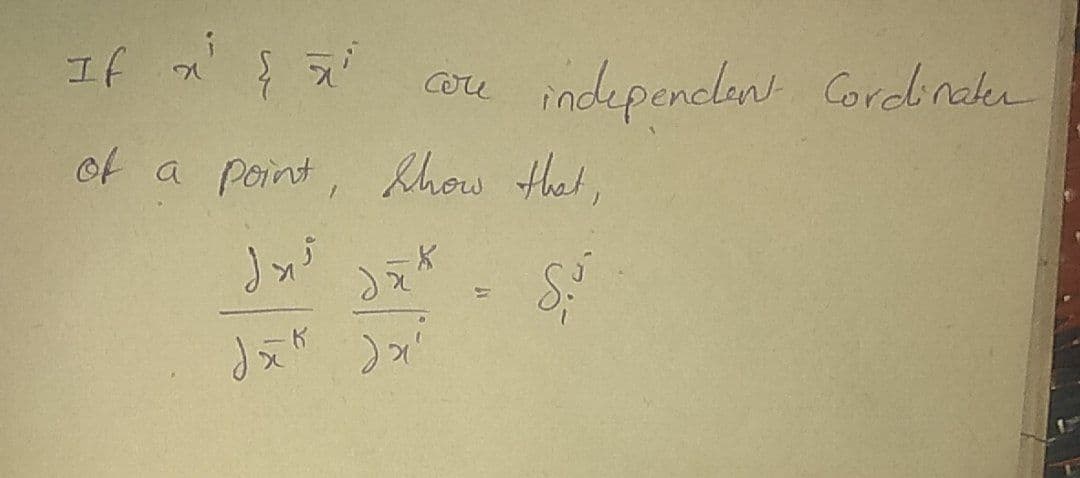 If xⁱ & x̄ⁱ are independent Cordinates
of a point, Show that,
∂xʲ/∂x̄ᴷ ∂x̄ᴷ/∂xⁱ = δᵢʲ